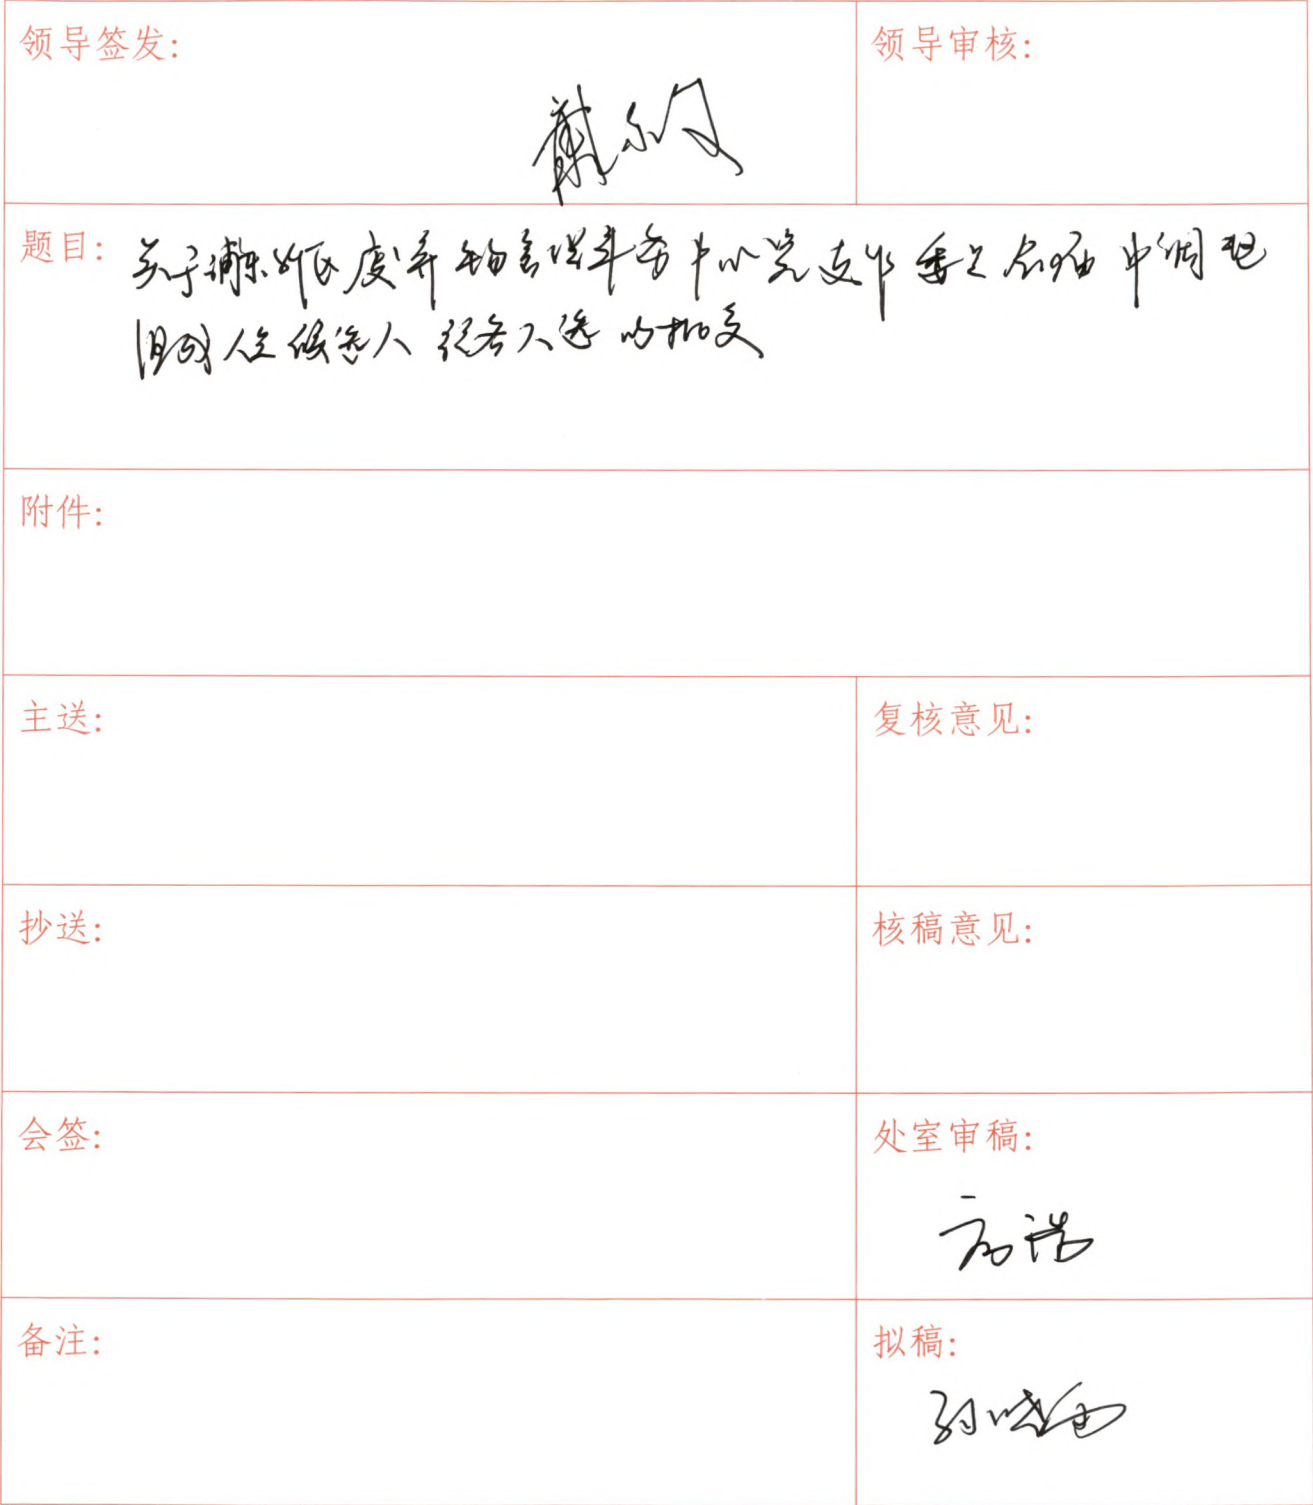 领导签发:
领导审核:
题目: 关于浦东新区废弃物管理事务中心党支部委员会
候选人 的批复
附件:
主送:
复核意见:
抄送:
核稿意见:
会签:
处室审稿:
高浩
备注:
拟稿:
孙晓雨